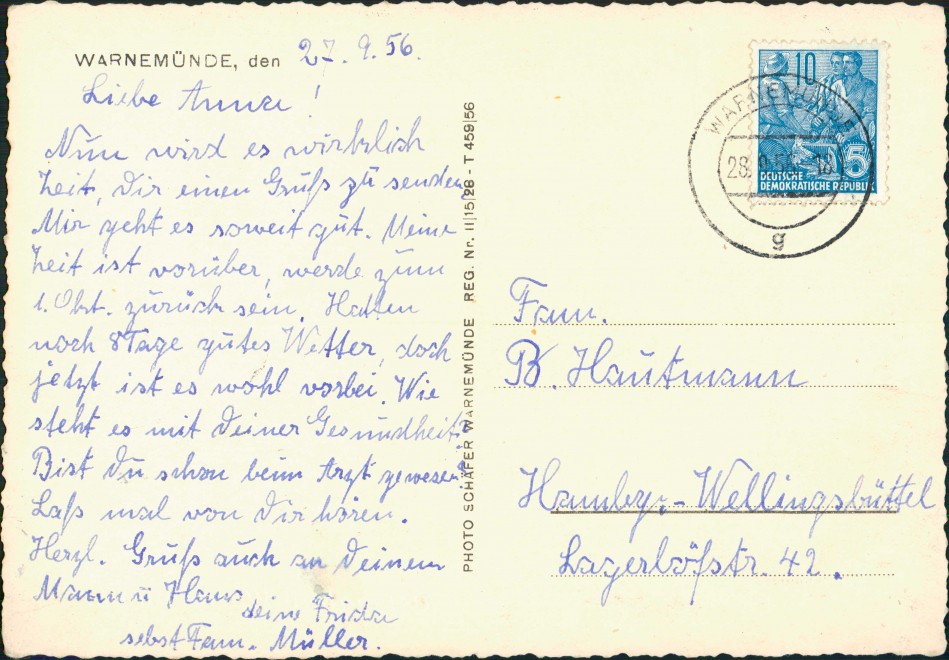 WARNEMÜNDE, den 27. 9. 56.
Liebe Anna!
Nun wird es wirklich
Zeit, dir einen Gruß zu senden.
Mir geht es soweit gut. Meine
Zeit ist vorüber, werde zum
1. Okt. zurück sein. Hatten
noch 8 Tage gutes Wetter, doch
jetzt ist es wohl vorbei. Wie
steht es mit deiner Gesundheit?
Bist du schon beim Arzt gewesen?
Laß mal von dir hören.
Herzl. Gruß auch an deinen
Mann u Hans
deine Frida
sebst Fam. Müller.
PHOTO SCHÄFER WARNEMÜNDE REG. Nr. II|15|28 - T 459|56
10
5
DEUTSCHE
DEMOKRATISCHE REPUBLIK
WARNEMÜNDE
28. 9. 56 - 18
g
Fam.
B. Hautmann
Hambg.-Wellingsbüttel
Lagerlöfstr. 42.